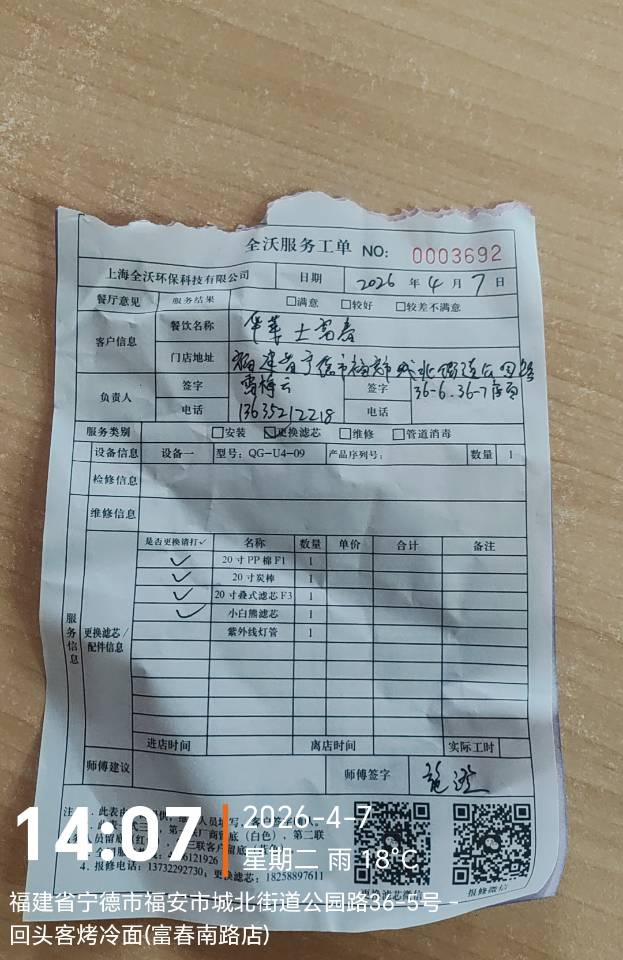 全沃服务工单 NO: 0003692
上海全沃环保科技有限公司 日期 2026 年 4 月 7 日
餐厅意见 服务结果 □满意 □较好 □较差不满意
客户信息 餐饮名称 华莱士富春
门店地址 福建省宁德市福安市城北街道公园路
36-6.36-7店面
负责人 签字 雷梅云 签字
电话 13635212218 电话
服务类别 □安装 ☑更换滤芯 □维修 □管道消毒
设备信息 设备一 型号: QG-U4-09 产品序列号: 数量 1
检修信息
维修信息
服务信息
更换滤芯/配件信息
是否更换请打✓ 名称 数量 单价 合计 备注
✓ 20寸PP棉F1 1
✓ 20寸炭棒 1
✓ 20寸叠式滤芯F3 1
✓ 小白熊滤芯 1
紫外线灯管 1
进店时间 离店时间 实际工时
师傅建议 师傅签字
4. 报修电话: 13732292730; 更换滤芯: 18258897611
更换滤芯微信 报修微信
14:07
2026-4-7
星期二 雨 18℃
福建省宁德市福安市城北街道公园路36-5号 -
回头客烤冷面(富春南路店)